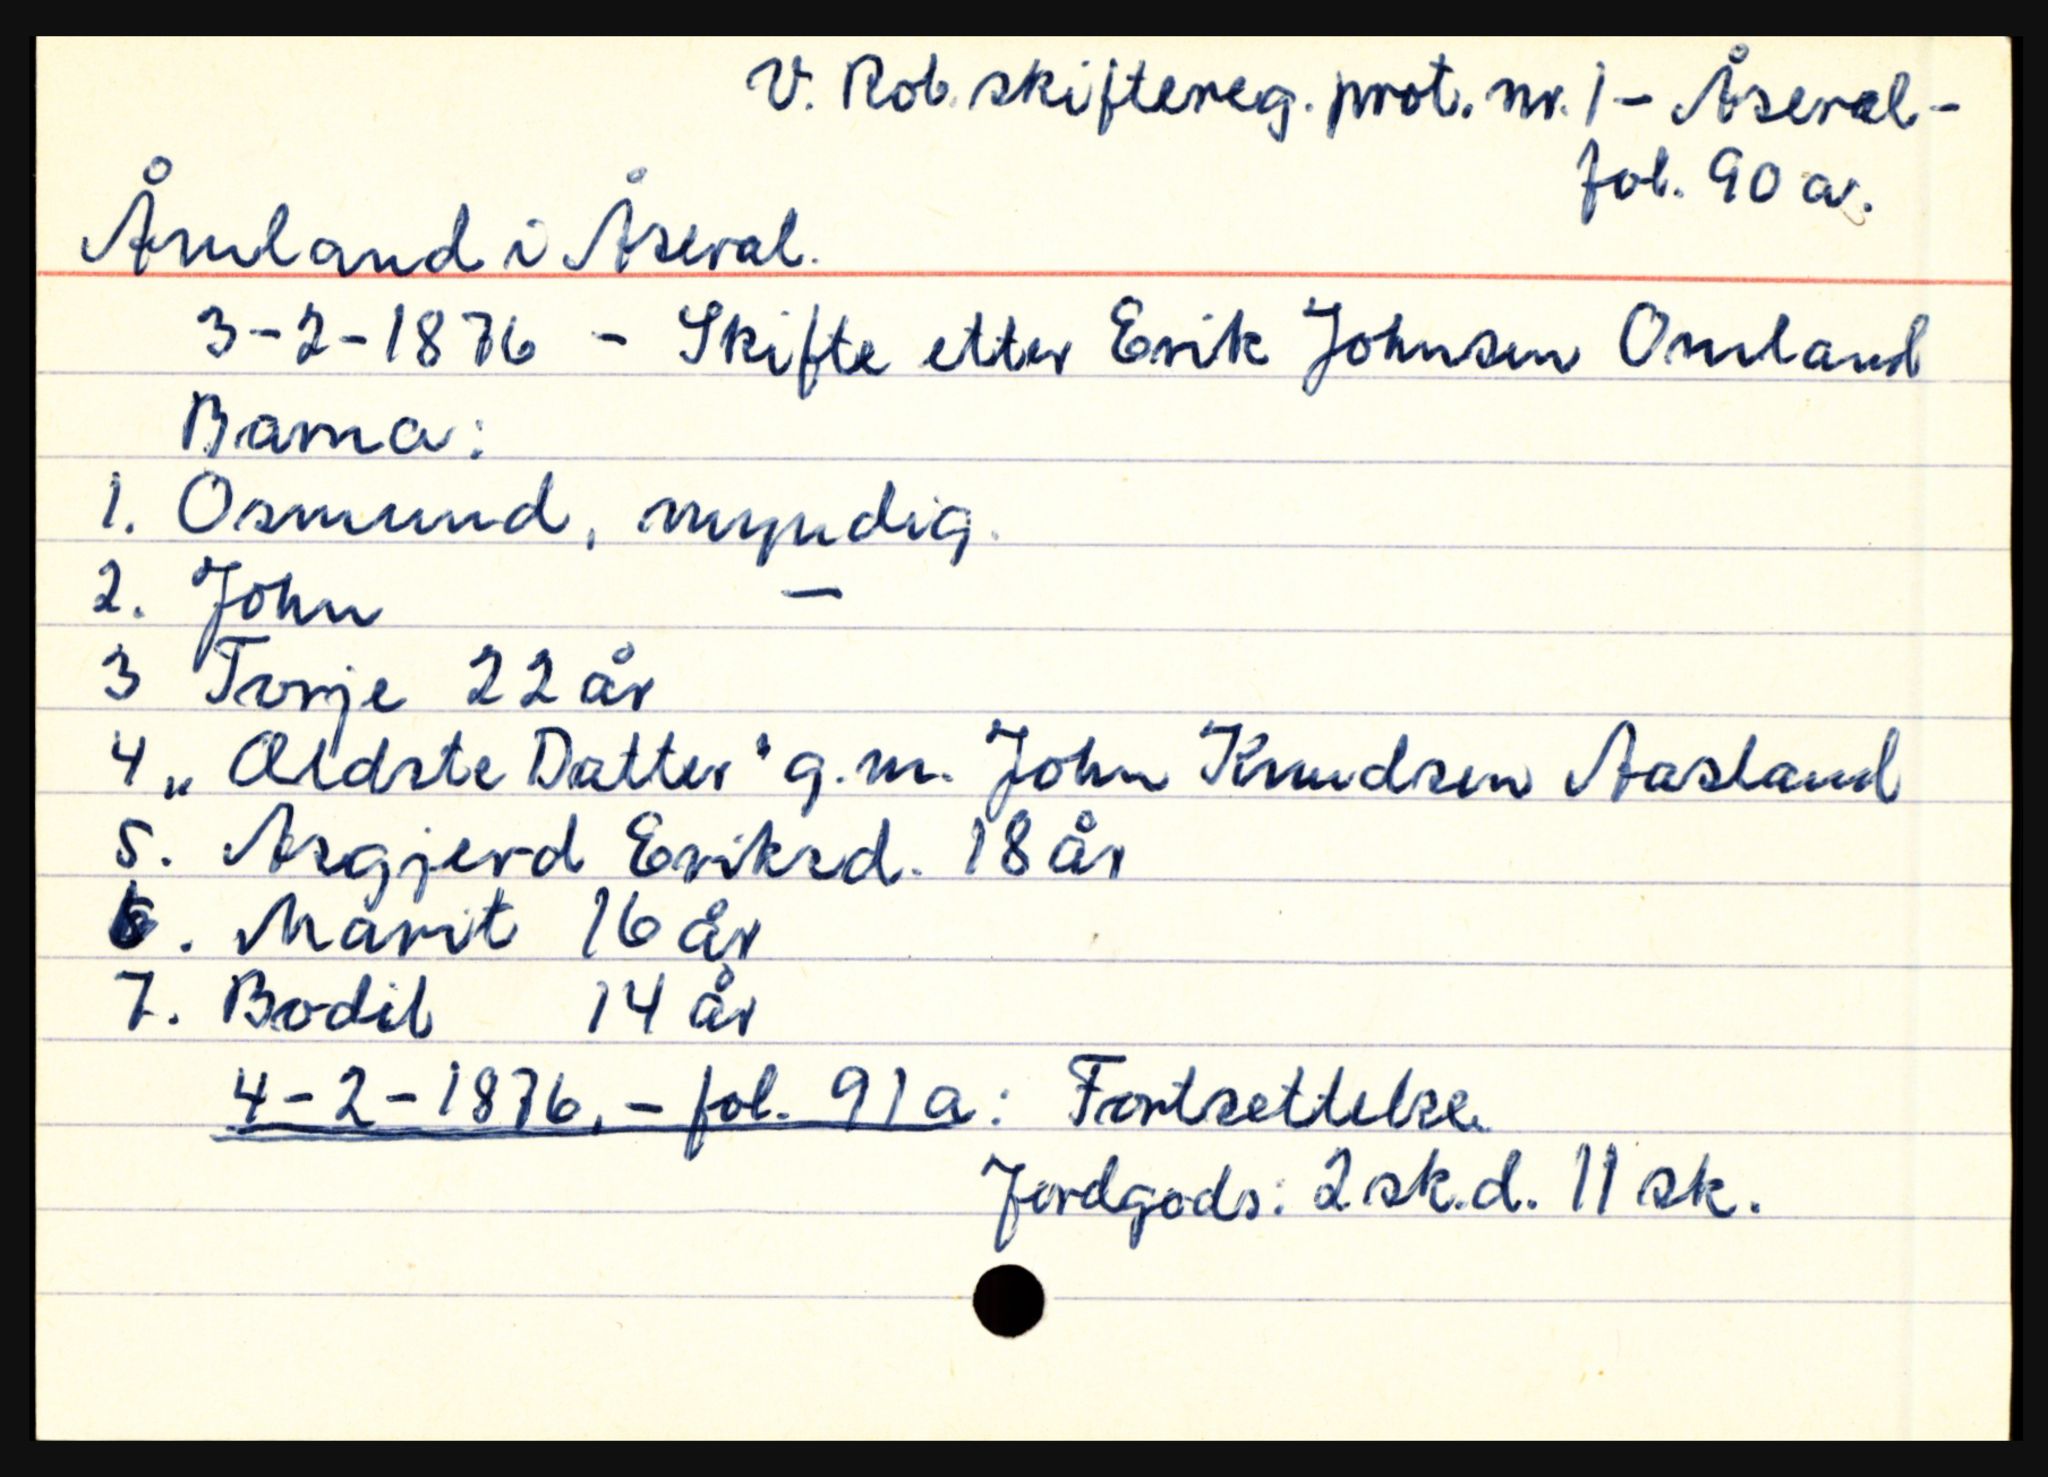 V. Rob. skiftereg. prot. nr. 1 - Åseral -
fol. 90 a.
Åmland i Åseral.
3-2-1876 - Skifte etter Erik Johnsen Omland
Barna:
1. Osmund, myndig.
2. John —
3 Torje 22 år
4 „Ældste Datter" g.m. John Knudsen Aasland
5. Asgjerd Eriksd. 18 år
6. Marit 16 år
7. Bodil 14 år
4-2-1876, - fol. 91a: Fortsettelse
Jordgods: 2 sk.d. 11 sk.